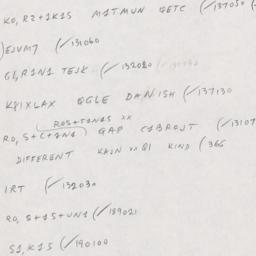 KO, R2+1K1S M1TMUN QETC (✓137030 (
)EJVM7 (✓131060
G1, R1N1 TEJK (✓132080
KPIXLAX QGLE DANISH (✓137130
ROS+S1N1S xx
RO, S+(+1N1) GAP C1BROJT (✓13107
DIFFERENT KAIN xx Q1 KIND (366
IRT (✓132030
RO, S+1S+UN1 (✓189021
S1, K1S (✓190100